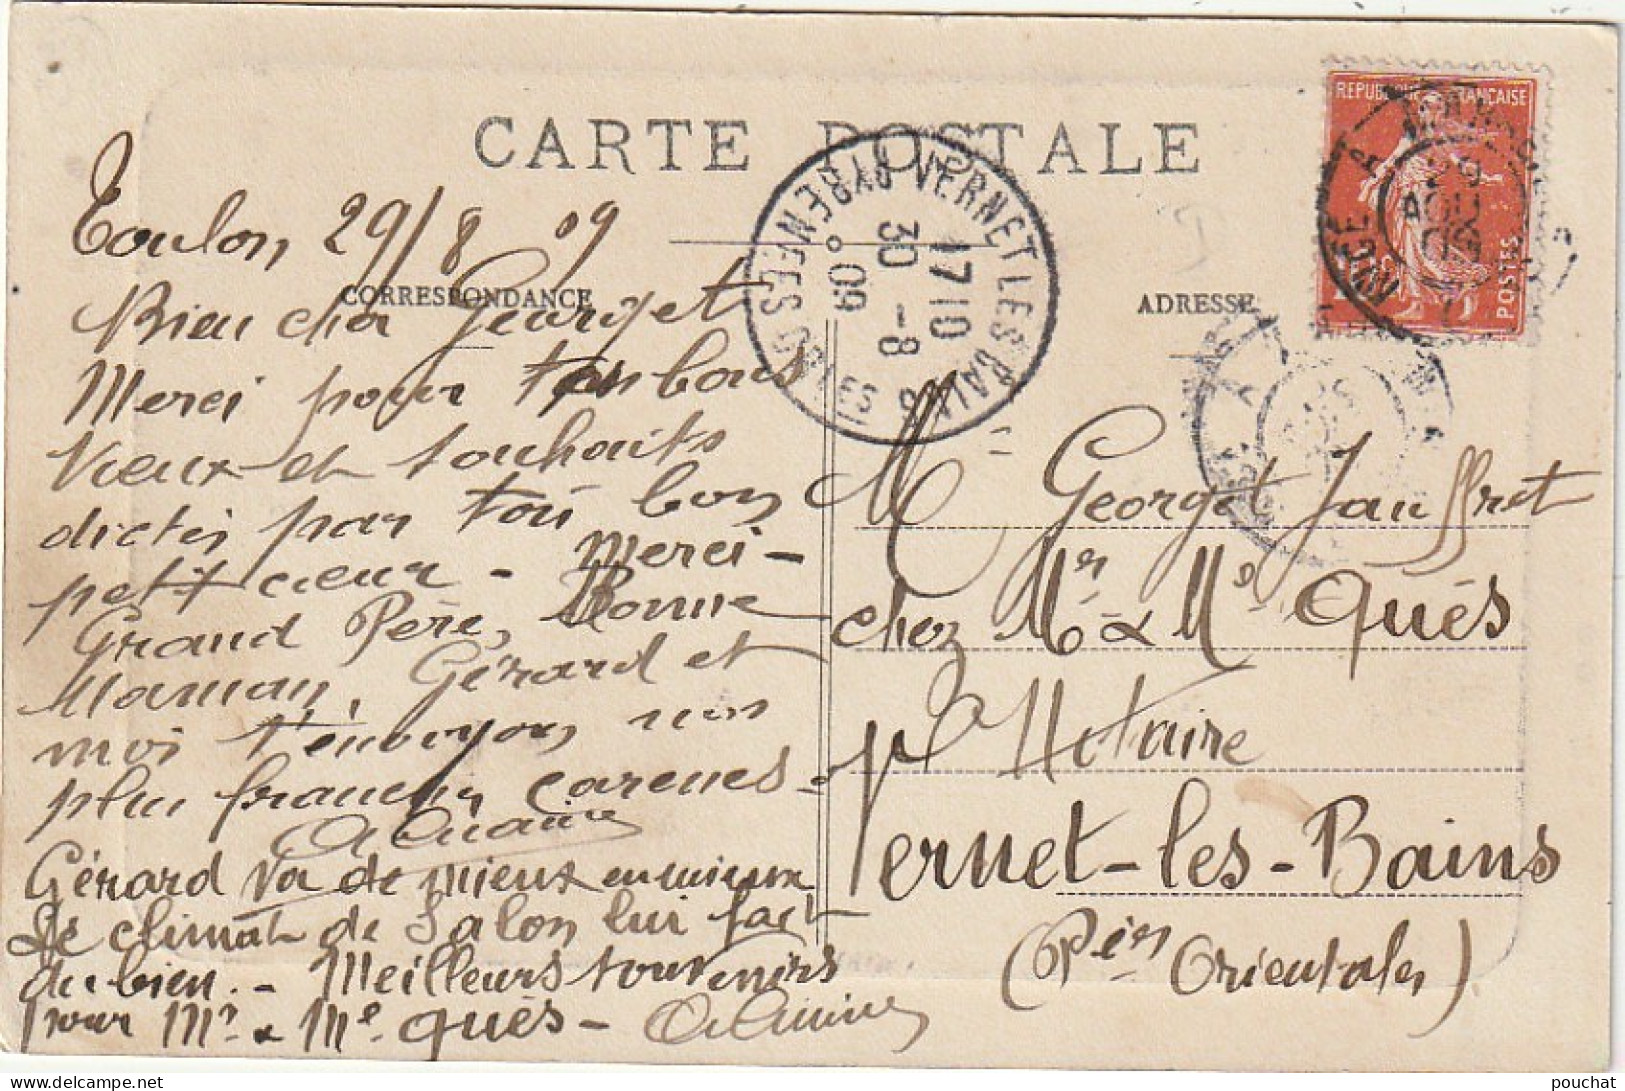 CARTE POSTALE
CORRESPONDANCE
ADRESSE
Toulon, 29/8 09
Bien cher Georget
Merci pour tes bons
Vœux et souhaits
dictés par ton bon
petit cœur - Merci -
Grand Père, Bonne
Maman, Gérard et
moi t'envoyons nos
plus franches caresses -
Gérard va de mieux en mieux
Le climat de Salon lui fait
du bien. - Meilleurs souvenirs
pour Mr & Me Qués -
Mr Georget Jauffret
chez Mr & Me Qués
Notaire
Vernet-les-Bains
(Pées Orientales)
REPUBLIQUE FRANÇAISE
POSTES
VERNET LES BAINS
PYRÉNÉES ORLES
17 10
30 -8
09
29
AOUT
09
delcampe.net
pouchat